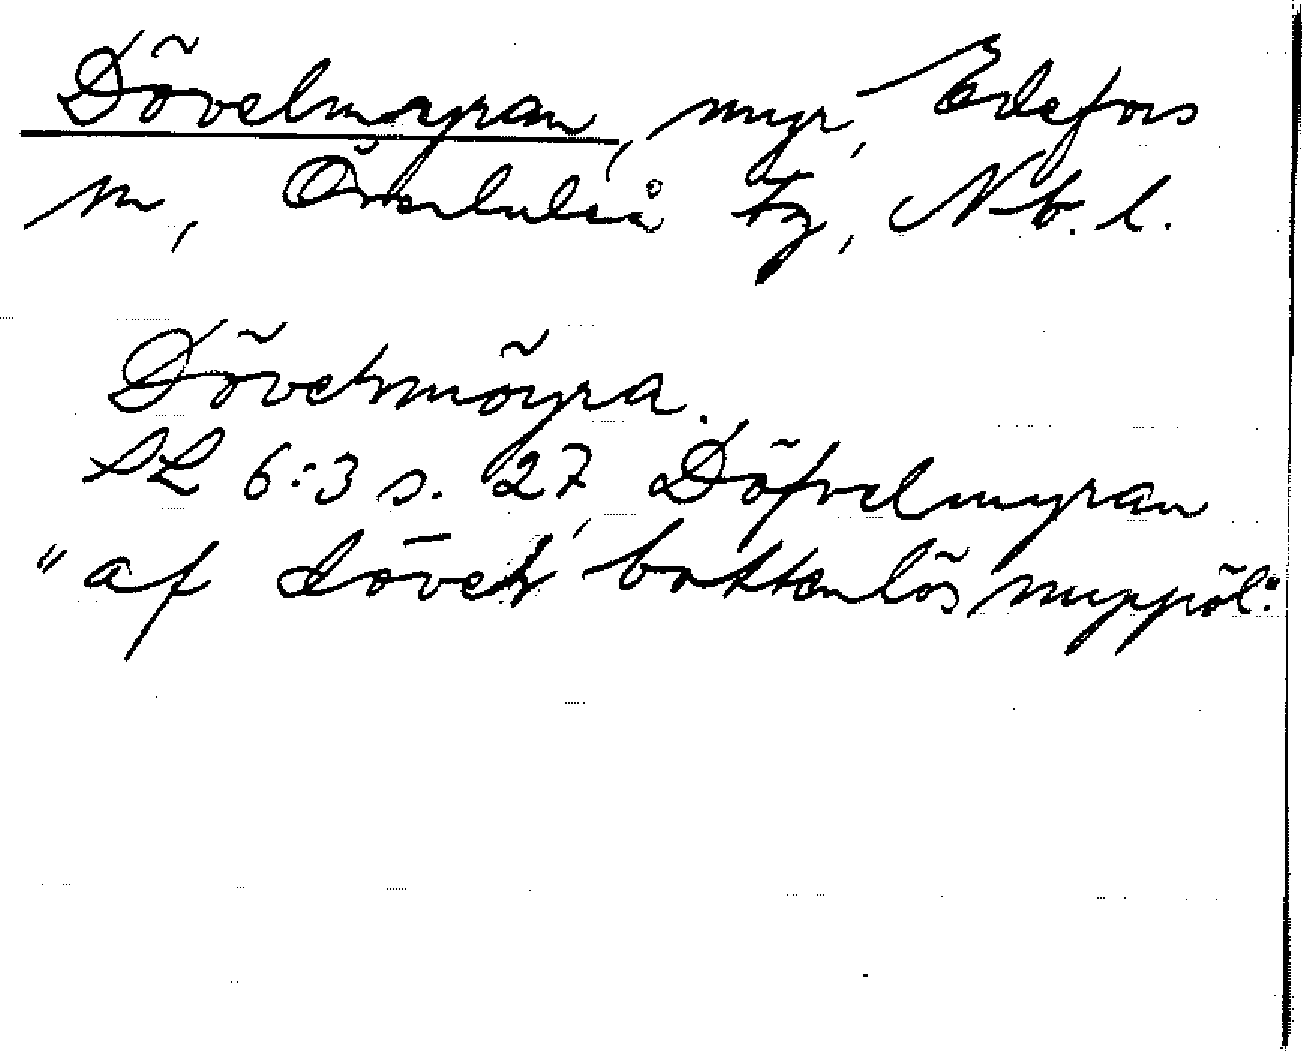 Dövelmyran, myr, Edefors
sn, Överluleå tg, Nb. l.
Dövetmöyra.
SL 6:3 s. 27, Döfvelmyran
"af dövet bottenlös myrpöl."